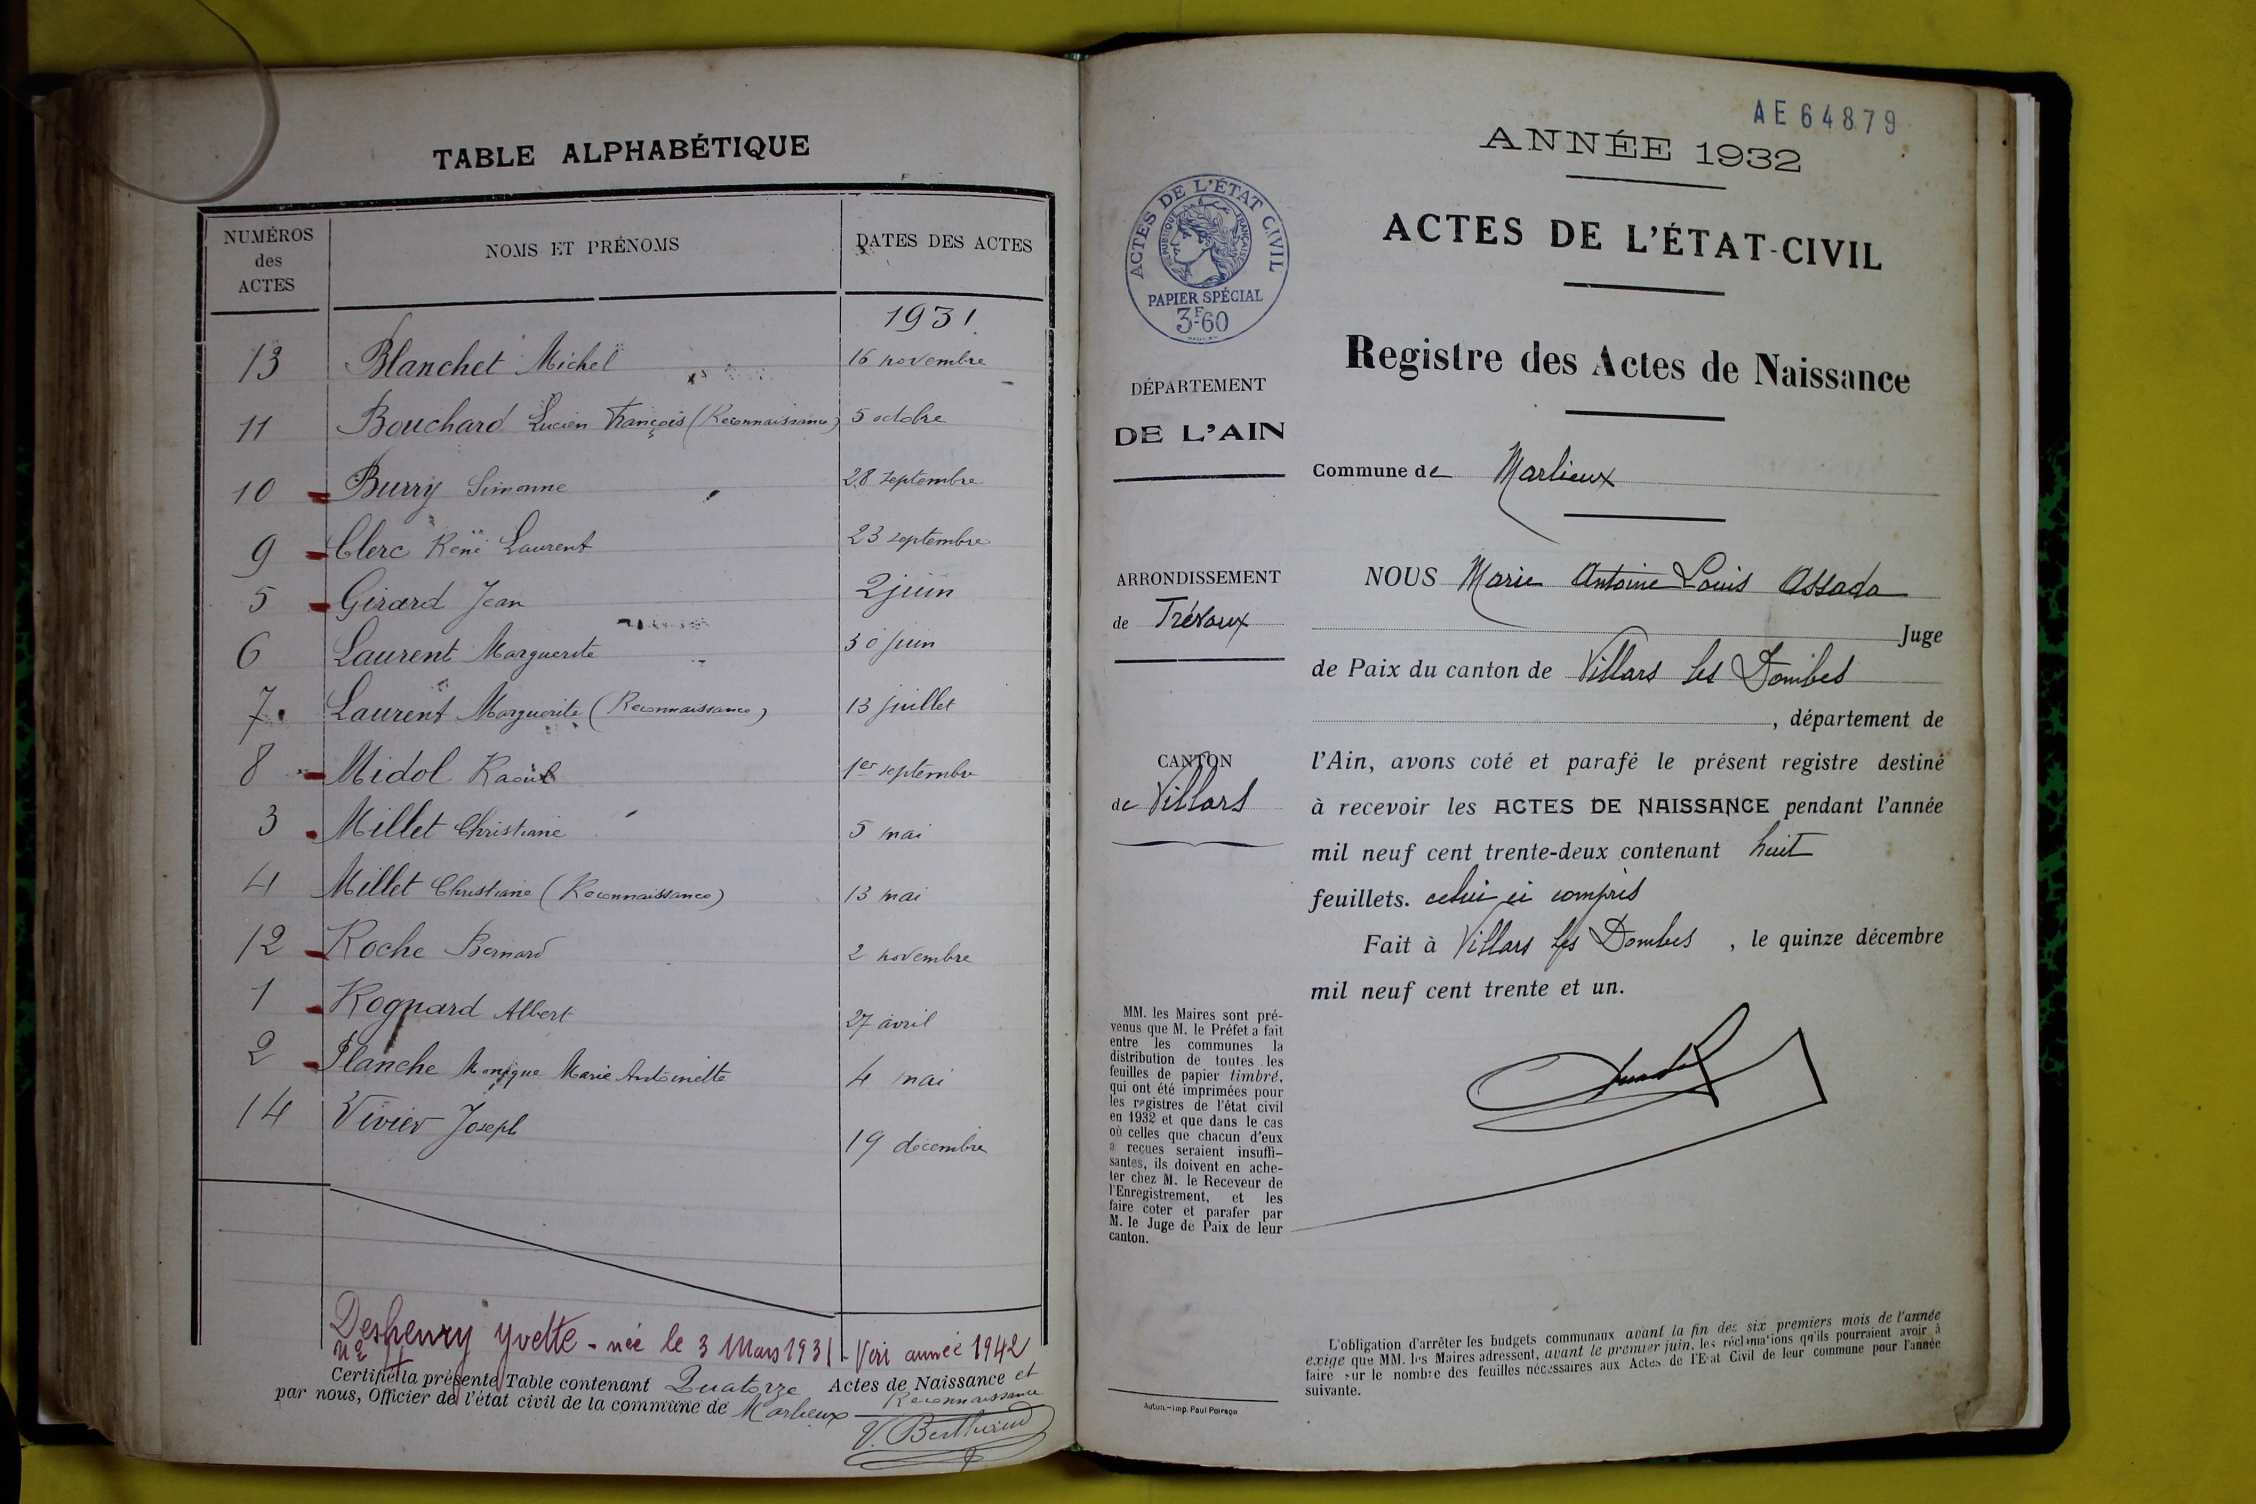 TABLE ALPHABÉTIQUE
NUMÉROS des ACTES NOMS ET PRÉNOMS DATES DES ACTES
1931
13 Blanchet Michel 16 novembre
11 Bouchard Lucien François (Reconnaissance) 5 octobre
10 Burry Simonne 28 septembre
9 Clerc René Laurent 23 septembre
5 Girard Jean 2 juin
6 Laurent Marguerite 30 juin
7 Laurent Marguerite (Reconnaissance) 13 juillet
8 Midol Raoul 1er septembre
3 Millet Christiane 5 mai
4 Millet Christiane (Reconnaissance) 13 mai
12 Roche Bernard 2 novembre
1 Rognard Albert 27 avril
2 Planche Monique Marie Antoinette 4 mai
14 Vivier Joseph 19 décembre
Deshenry Yvette - née le 3 Mars 1931 - Voir année 1942
Certifié la présente Table contenant Quatorze Actes de Naissance et
Reconnaissance
par nous, Officier de l'état civil de la commune de Marlieux
V. Berthurand
AE64879
ANNÉE 1932
ACTES DE L'ÉTAT CIVIL
RÉPUBLIQUE FRANÇAISE
PAPIER SPÉCIAL
3F60
ACTES DE L'ÉTAT-CIVIL
Registre des Actes de Naissance
DÉPARTEMENT
DE L'AIN
ARRONDISSEMENT
de Trévoux
CANTON
de Villars
MM. les Maires sont pré-
venus que M. le Préfet a fait
entre les communes la
distribution de toutes les
feuilles de papier timbré,
qui ont été imprimées pour
les registres de l'état civil
en 1932 et que dans le cas
où celles que chacun d'eux
a reçues seraient insuffi-
santes, ils doivent en ache-
ter chez M. le Receveur de
l'Enregistrement, et les
faire coter et parafer par
M. le Juge de Paix de leur
canton.
Autun.-Imp. Paul Poirson
Commune de Marlieux
NOUS Marie Antoine Louis Assada
Juge
de Paix du canton de Villars les Dombes
, département de
l'Ain, avons coté et parafé le présent registre destiné
à recevoir les ACTES DE NAISSANCE pendant l'année
mil neuf cent trente-deux contenant huit
feuillets. celui ci compris
Fait à Villars les Dombes , le quinze décembre
mil neuf cent trente et un.
L'obligation d'arrêter les budgets communaux avant la fin des six premiers mois de l'année
exige que MM. les Maires adressent, avant le premier juin, les réclamations qu'ils pourraient avoir à
faire sur le nombre des feuilles nécessaires aux Actes de l'Etat Civil de leur commune pour l'année
suivante.